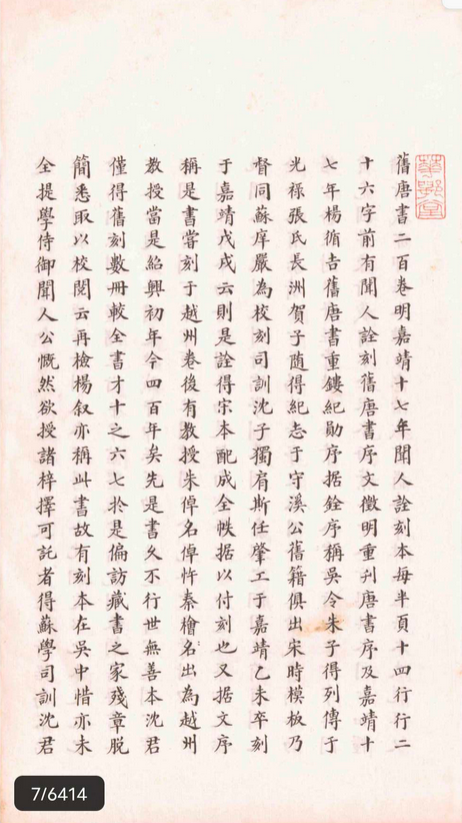 舊唐書二百卷明嘉靖十七年聞人詮刻本每半頁十四行行二
十六字前有聞人詮刻舊唐書序文徵明重刋唐書序及嘉靖十
七年楊循吉舊唐書重鏤紀勛序据銓序稱吳令朱子得列傳于
光祿張氏長洲賀子随得紀志于守溪公舊籍俱出宋時模板乃
督同蘇庠嚴為校刻司訓沈子獨肩斯任肇工于嘉靖乙未卒刻
于嘉靖戊戌云則是詮得宋本配成全帙据以付刻也又据文序
稱是書嘗刻于越州卷後有教授朱倬名倬忤秦檜名出為越州
教授當是紹興初年今四百年矣先是書久不行世無善本沈君
僅得舊刻數冊較全書才十之六七於是徧訪藏書之家殘章脱
簡悉取以校閱云再檢楊叙亦稱此書故有刻本在吳中惜亦未
全提學侍御聞人公慨然欲授諸梓擇可託者得蘇學司訓沈君
7/6414